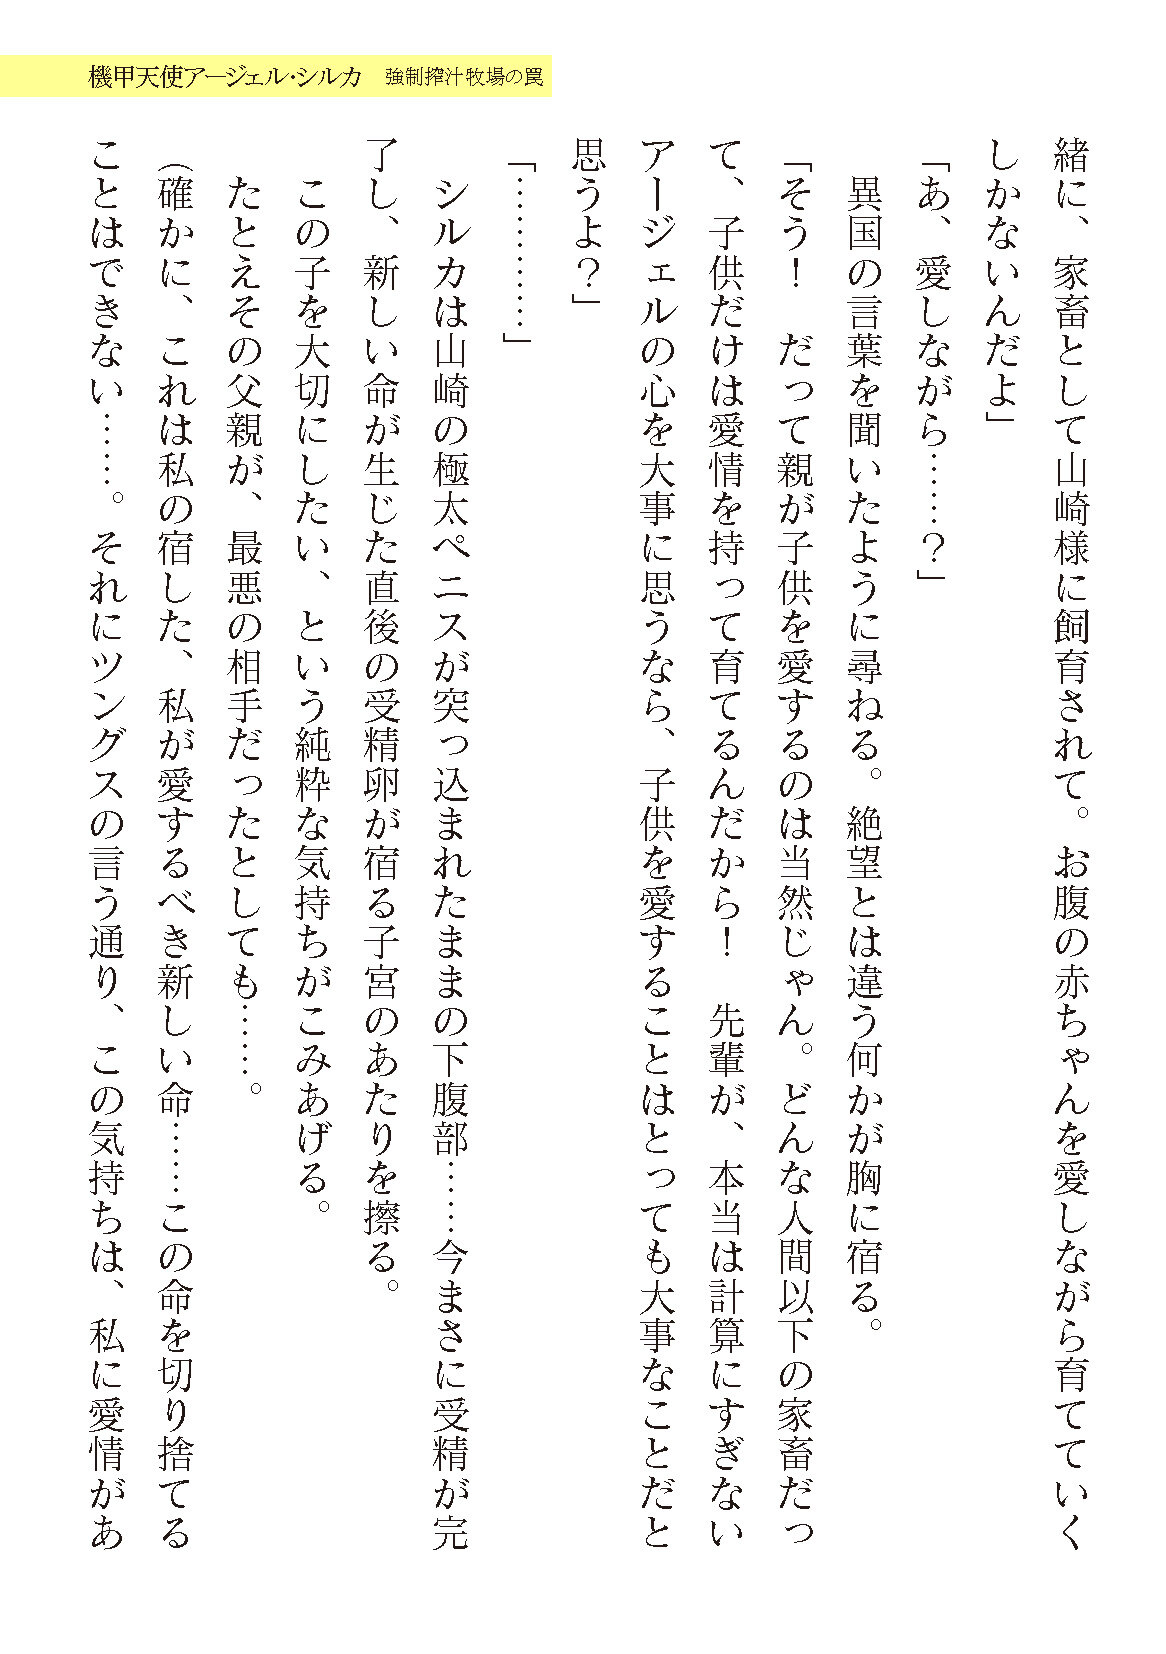 機甲天使アージェル・シルカ　強制搾汁牧場の罠
緒に、家畜として山崎様に飼育されて。お腹の赤ちゃんを愛しながら育てていく
しかないんだよ」
「あ、愛しながら……？」
　異国の言葉を聞いたように尋ねる。絶望とは違う何かが胸に宿る。
「そう！　だって親が子供を愛するのは当然じゃん。どんな人間以下の家畜だっ
て、子供だけは愛情を持って育てるんだから！　先輩が、本当は計算にすぎない
アージェルの心を大事に思うなら、子供を愛することはとっても大事なことだと
思うよ？」
「…………」
　シルカは山崎の極太ペニスが突っ込まれたままの下腹部……今まさに受精が完
了し、新しい命が生じた直後の受精卵が宿る子宮のあたりを擦る。
　この子を大切にしたい、という純粋な気持ちがこみあげる。
　たとえその父親が、最悪の相手だったとしても……。
（確かに、これは私の宿した、私が愛するべき新しい命……この命を切り捨てる
ことはできない……。それにツングスの言う通り、この気持ちは、私に愛情があ